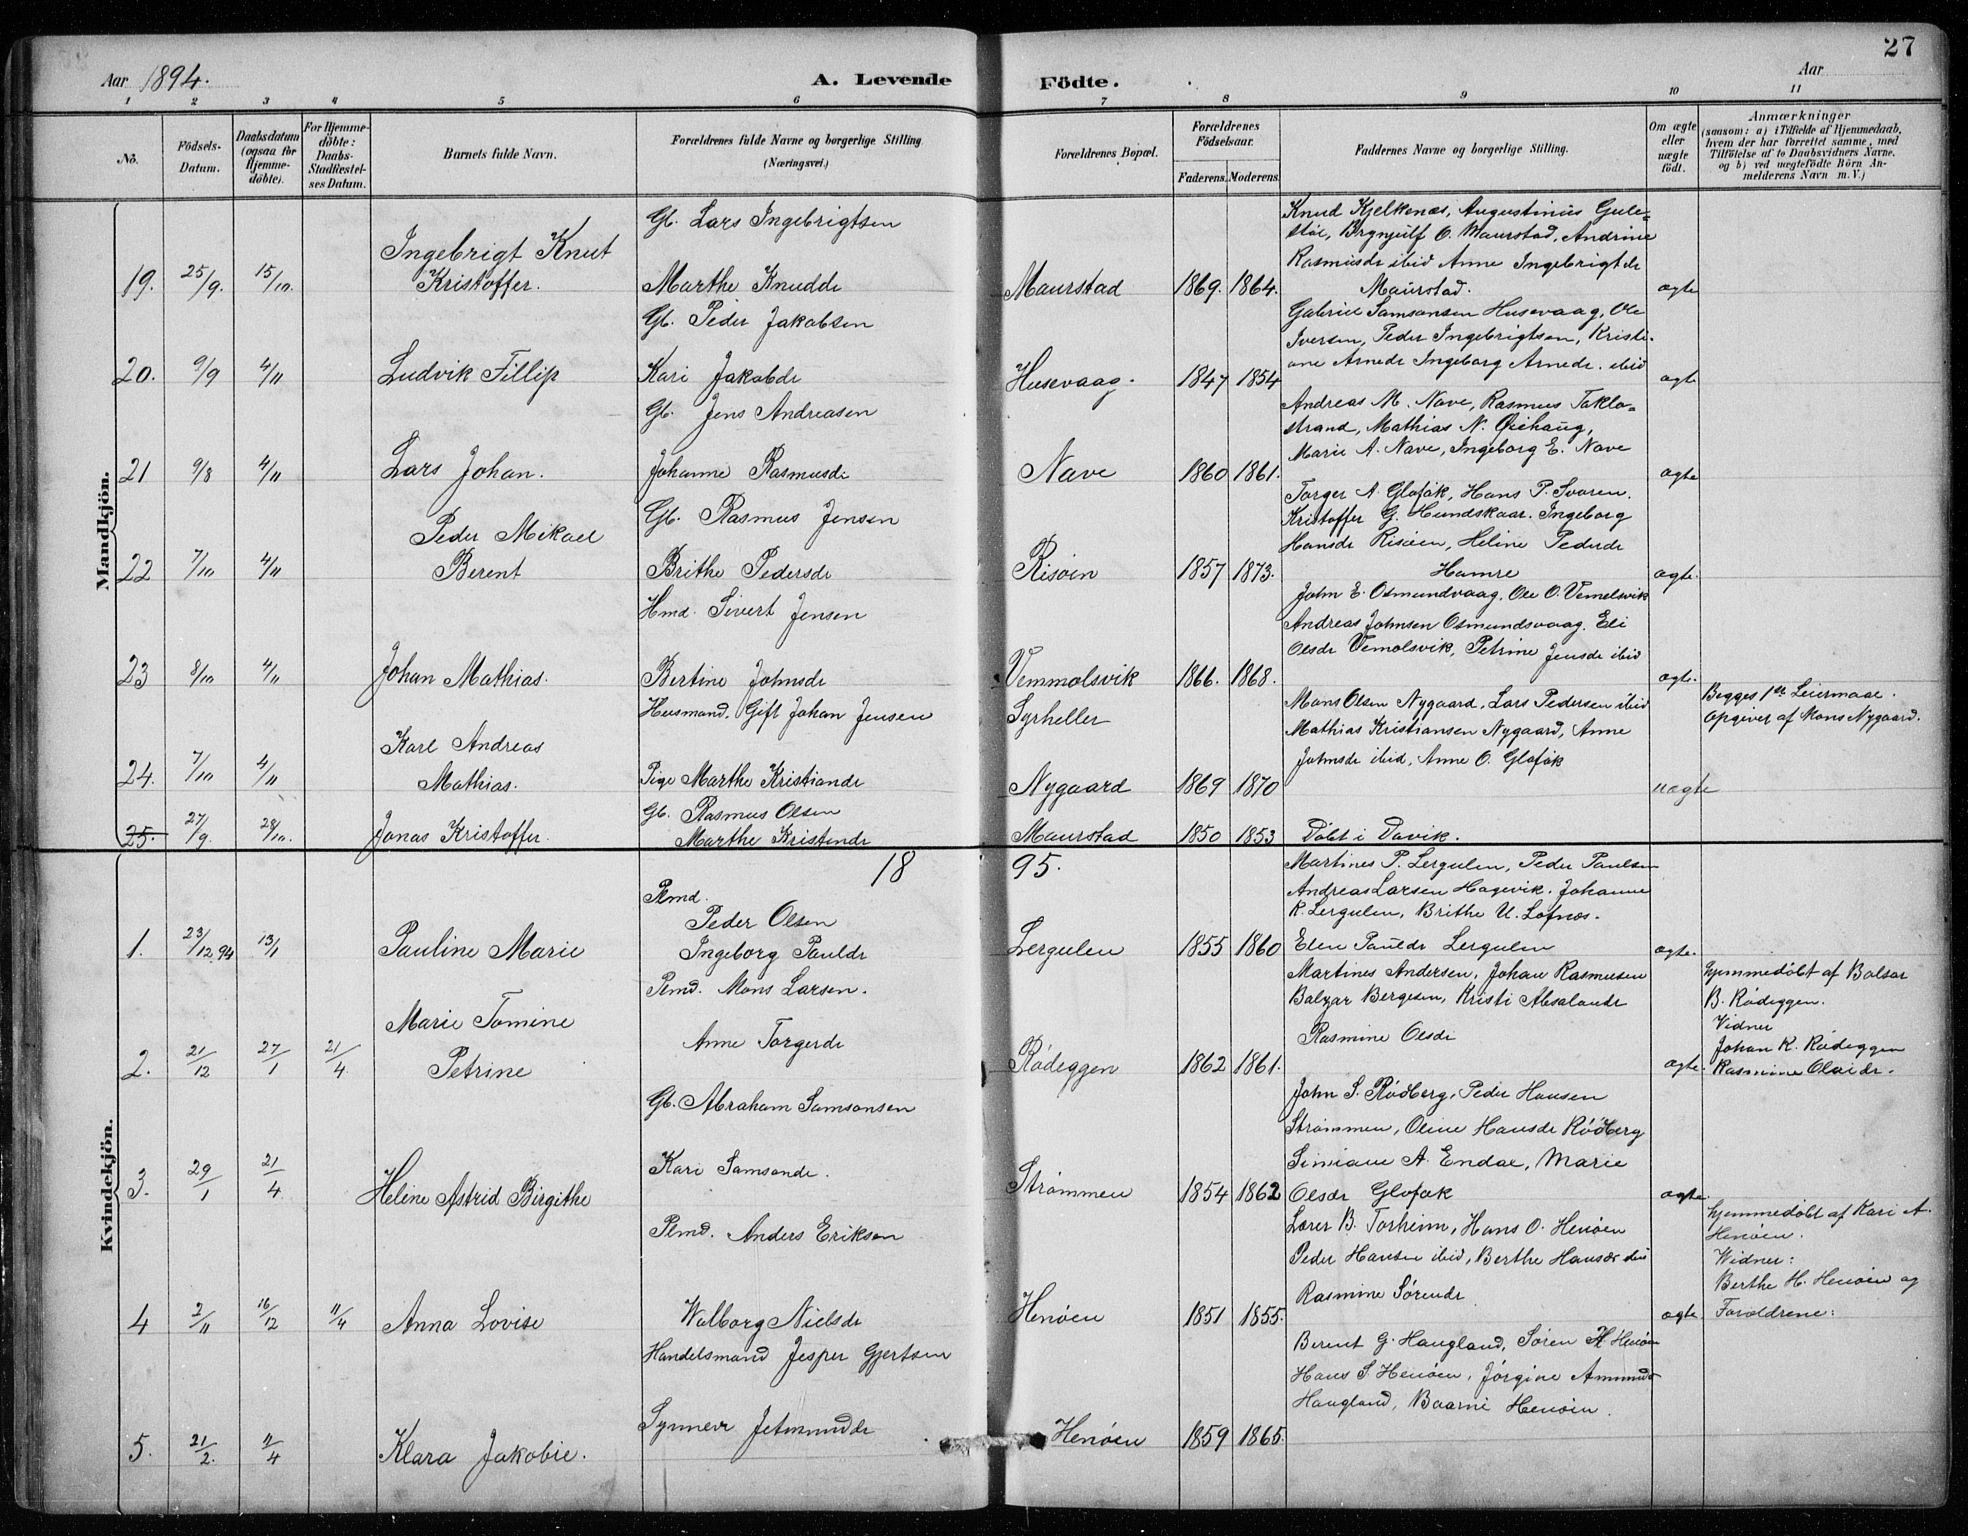 27
Aar 1894.
A. Levende Födte.
Aar
1 2 3 4 5 6 7 8 9 10 11
No.
Födsels-Datum.
Daabsdatum (ogsaa for Hjemme-döbte).
For Hjemme-döbte: Daabs-Stadfæstel-ses Datum.
Barnets fulde Navn.
Forældrenes fulde Navne og borgerlige Stilling (Næringsvei.)
Forældrenes Bopæl.
Forældrenes Födselsaar.
Faderens. Moderens.
Faddernes Navne og borgerlige Stilling.
Om ægte eller uægte födt.
Anmærkninger
(saasom: a) i Tilfælde af Hjemmedaab, hvem der har forrettet samme, med Tilföielse af to Daabsvidners Navne, og b) ved uægtefödte Börn Anmelderens Navn m. V.)
Mandkjön.
19. 25/9. 15/10. Ingebrigt Knut Kristoffer.
Gb. Lars Ingebrigtsen
Marthe Knudde
Maurstad 1869. 1864.
Knud Kjelkenæs, Augustinus Gule=
støe, Brynjulf O. Maurstad, Andrine
Rasmusdr ibid Anne Ingebrigtdr
Maurstad.
ægte
20. 9/9 4/11 Ludvik Fillip
Gb. Peder Jakobsen
Kari Jakobdr
Husevaag. 1847 1854
Gabriel Samsonsen Husevaag, Ole
Iversen, Peder Ingebrigtsen, Kristi-
ane Arnedr Ingeborg Arnedr. ibid
ægte
21 9/8 4/11 Lars Johan.
Gb. Jens Andreasen
Johanne Rasmusdr
Nave 1860 1861.
Andreas M. Nave, Rasmus Taklo=
strand, Mathias N. Øiehaug,
Marie A. Nave, Ingeborg E. Nave
ægte
22 7/10 4/11 Peder Mikael Berent
Gb. Rasmus Jensen
Brithe Pedersdr
Risøen 1857 1873.
Torger A. Gloføk, Hans P. Svoren.
Kristoffer G. Hundskaar. Ingeborg
Hansdr Risøen, Heline Pederdr
Hamre
ægte.
23 8/10 4/11 Johan Mathias.
Hmd. Sivert Jensen
Bertine Johnsdr
Vemmolsvik 1866. 1868.
John E. Osmundvaag, Ole O. Vemelsvik
Andreas Johnsen Osmundsvaag. Eli
Olsdr Vemolsvik, Petrine Jensdr ibid
ægte.
24. 7/10 4/11 Karl Andreas Mathias.
Husmand. Gift Johan Jensen
Pige Marthe Kristiandr
Syrheller
Nygaard 1869 1870
Mons Olsen Nygaard, Lars Pedersen ibid
Mathias Kristiansen Nygaard, Anne
Johnsdr ibid, Anne O. Gloføk
uægte
Begges 1ste Leiermaal.
Opgiver af Mons Nygaard.
25. 27/9. 28/10. Jonas Kristoffer.
Gb. Rasmus Olsen
Marthe Kristendr
Maurstad 1850 1853 Döbt i Davik.
1895.
Kvindekjön.
1. 23/12.94 13/1 Pauline Marie
Plmd.
Peder Olsen
Ingeborg Pauldr
Lergulen 1855 1860
Martines P. Lergulen, Peder Paulsen
Andreas Larsen Hagevik. Johanne
R. Lergulen, Brithe U. Lofnæs.
Elen Pauldr Lergulen
ægte.
2. 21/12 27/1 21/4 Marie Tomine Petrine
Plmd. Mons Larsen.
Anne Torgerdr
Rødeggen 1862 1861.
Martines Andersen, Johan Rasmusen
Balzar Bergesen, Kristi Absalondr
Rasmine Olsdr
ægte.
hjemmedöbt af Balsar
B. Rødeggen.
Vidner
Johan R. Rødeggen
Rasmine Olaidr.
3. 29/1 21/4 Heline Astrid Birgithe
Gb. Abraham Samsonsen
Kari Samsondr.
Strømmen 1854 1862
John S. Rødberg, Peder Hansen
Strømmen, Oline Hansdr Rødberg
Siviane A. Endal, Marie
Olsdr Gloføk
ægte.
4 2/11 16/12 11/4 Anna Lovise
Plmd. Anders Erikson
Walborg Nielsdr
Henøen 1851 1855.
Lorer B. Torheim, Hans O. Henøen
Peder Hansen ibid, Berthe Hansdr ibid
Rasmine Sørendr
ægte
hjemmedöbt af Kari A.
Henøen.
Widner:
Berthe H. Henøen og
Forældrene:
5. 21/2. 11/4 Klara Jakobie.
Handelsmand Jesper Gjertsen
Synneve Jetmunddr
Henøen 1859 1865.
Berent G. Haugland, Søren H. Henøen
Hans S Henøen, Jørgine Amunds
Haugland, Baarni Henøen.